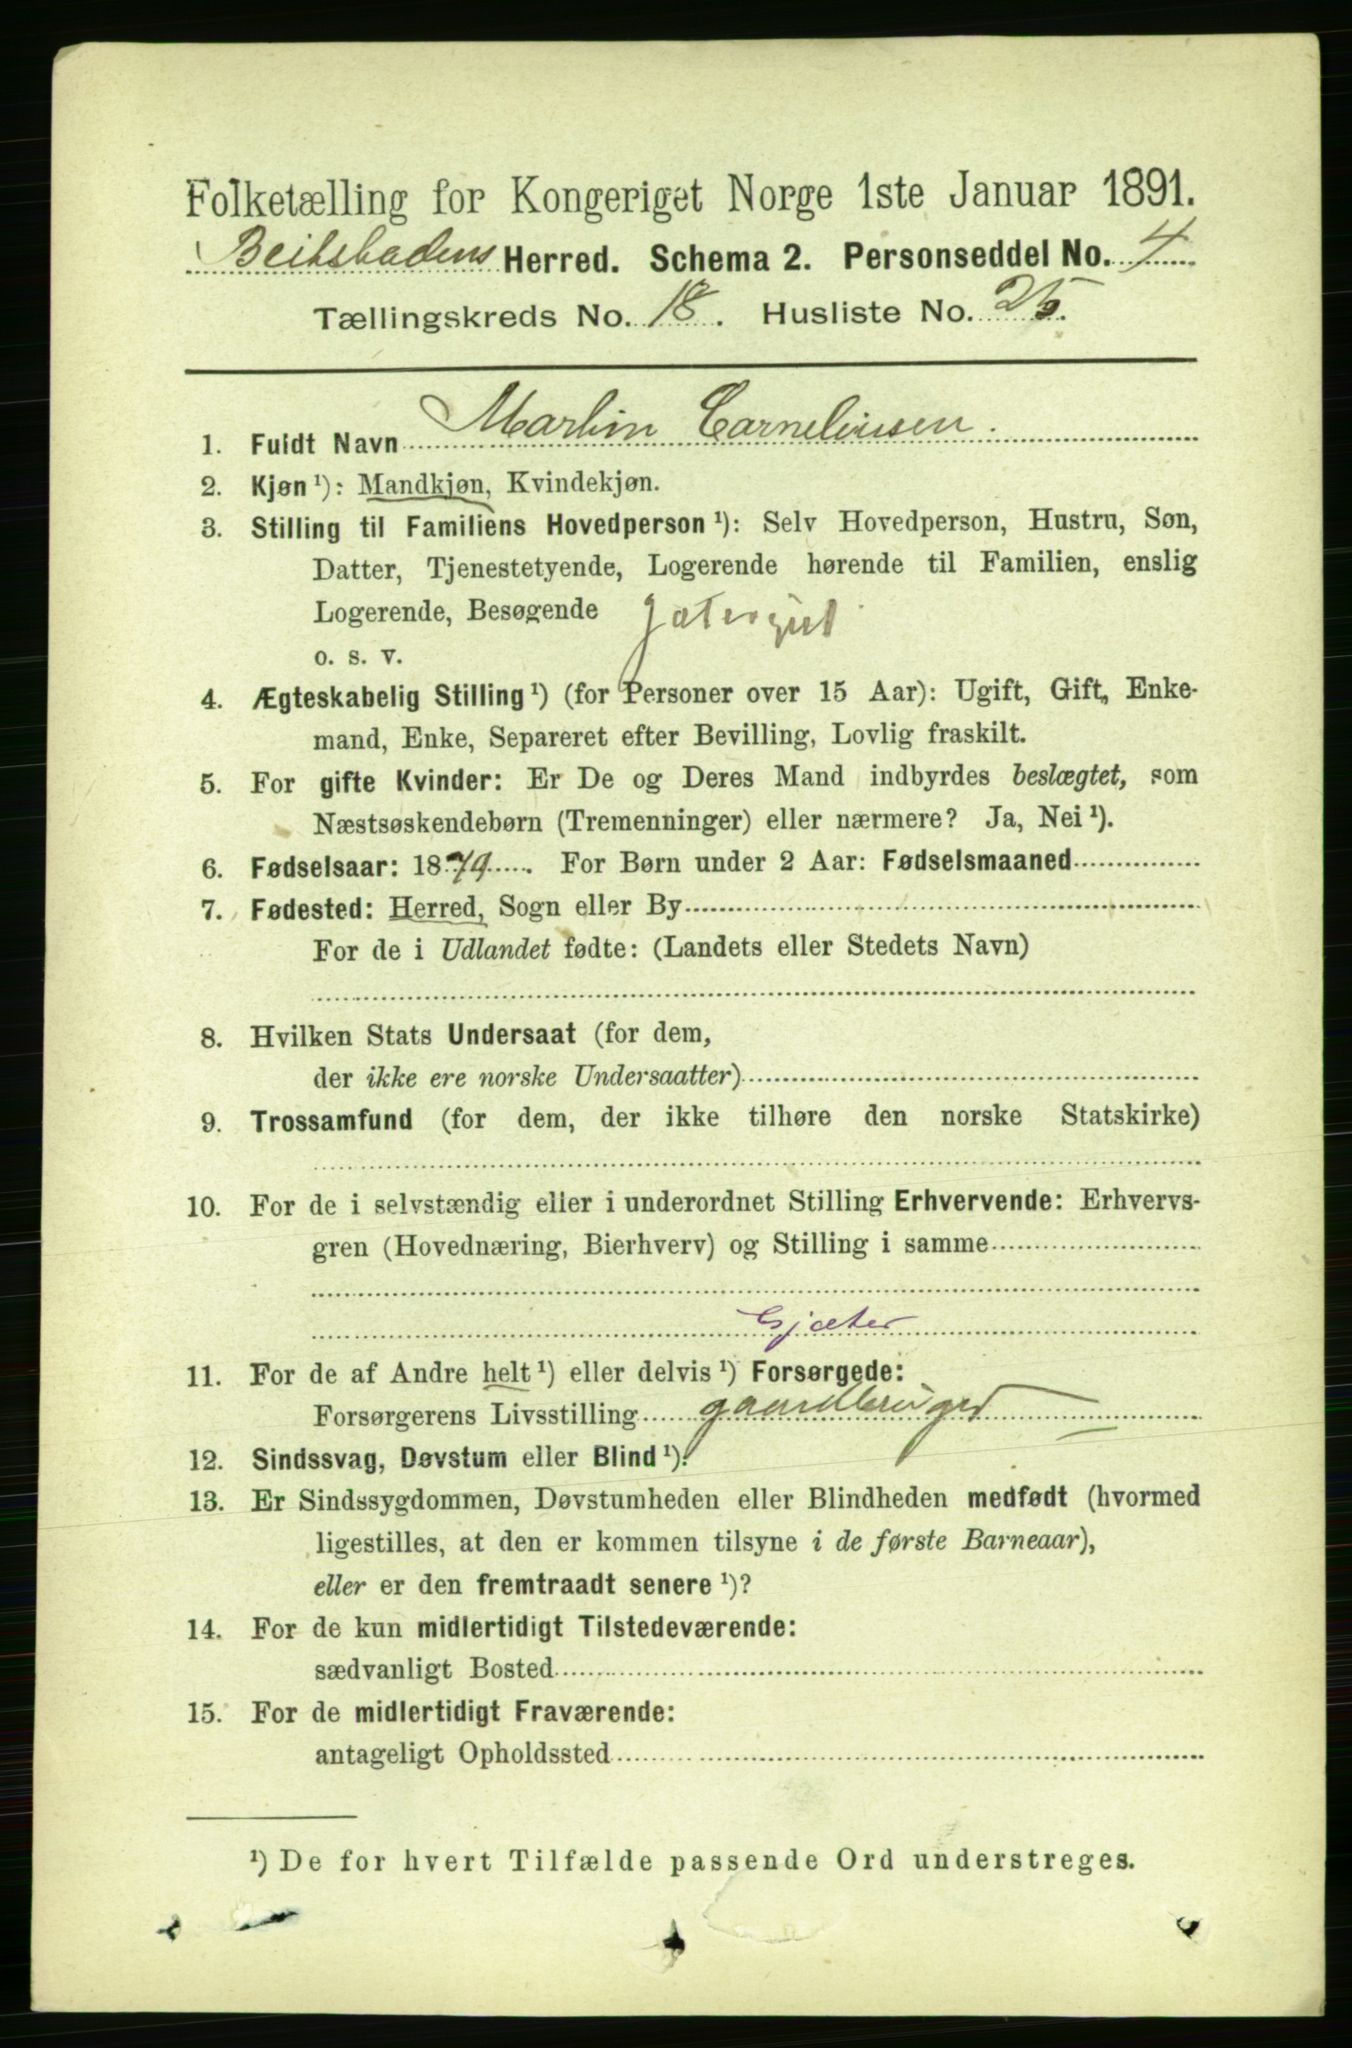 Folketælling for Kongeriget Norge 1ste Januar 1891.
Beitstadens Herred. Schema 2. Personseddel No. 4
Tællingskreds No. 18. Husliste No. 25.
1. Fuldt Navn Martin Cornelinsen.
2. Kjøn ¹): Mandkjøn, Kvindekjøn.
3. Stilling til Familiens Hovedperson ¹): Selv Hovedperson, Hustru, Søn,
Datter, Tjenestetyende, Logerende hørende til Familien, enslig
Logerende, Besøgende jætergut
o. s. v.
4. Ægteskabelig Stilling ¹) (for Personer over 15 Aar): Ugift, Gift, Enke-
mand, Enke, Separeret efter Bevilling, Lovlig fraskilt.
5. For gifte Kvinder: Er De og Deres Mand indbyrdes beslægtet, som
Næstsøskendebørn (Tremenninger) eller nærmere? Ja, Nei ¹).
6. Fødselsaar: 1879. For Børn under 2 Aar: Fødselsmaaned
7. Fødested: Herred, Sogn eller By
For de i Udlandet fødte: (Landets eller Stedets Navn)
8. Hvilken Stats Undersaat (for dem,
der ikke ere norske Undersaatter)
9. Trossamfund (for dem, der ikke tilhøre den norske Statskirke)
10. For de i selvstændig eller i underordnet Stilling Erhvervende: Erhvervs-
gren (Hovednæring, Bierhverv) og Stilling i samme
Gjæter
11. For de af Andre helt ¹) eller delvis ¹) Forsørgede:
Forsørgerens Livsstilling gaardbruger
12. Sindssvag, Døvstum eller Blind ¹).
13. Er Sindssygdommen, Døvstumheden eller Blindheden medfødt (hvormed
ligestilles, at den er kommen tilsyne i de første Barneaar),
eller er den fremtraadt senere ¹)?
14. For de kun midlertidigt Tilstedeværende:
sædvanligt Bosted
15. For de midlertidigt Fraværende:
antageligt Opholdssted
¹) De for hvert Tilfælde passende Ord understreges.